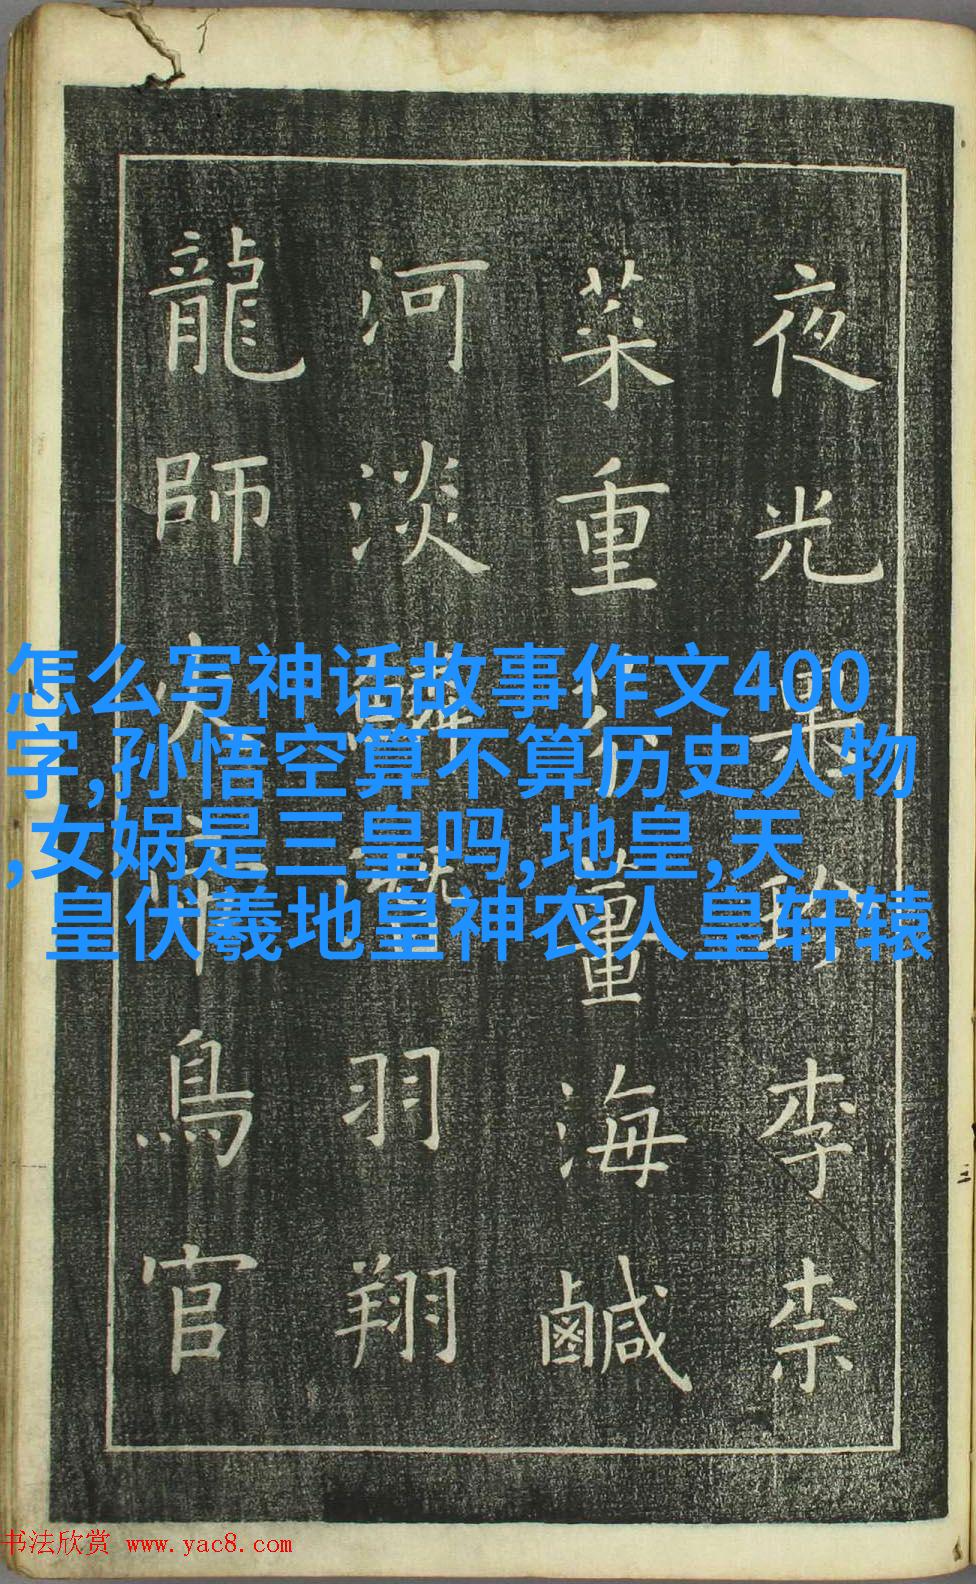 夜光果珍李柰
菜重芥薑海鹹
河淡鱗潛羽翔
龍師火帝鳥官
怎么写神话故事作文400
字,孙悟空算不算历史人物
,女娲是三皇吗,地皇,天
皇伏羲地皇神农人皇轩辕
书法欣赏 www.yac8.com